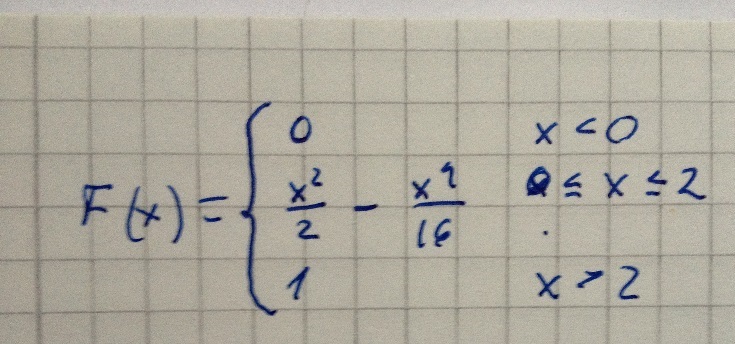 0 x < 0
F(x) = { x²/2 - x⁴/16 0 ≤ x ≤ 2
1 x > 2